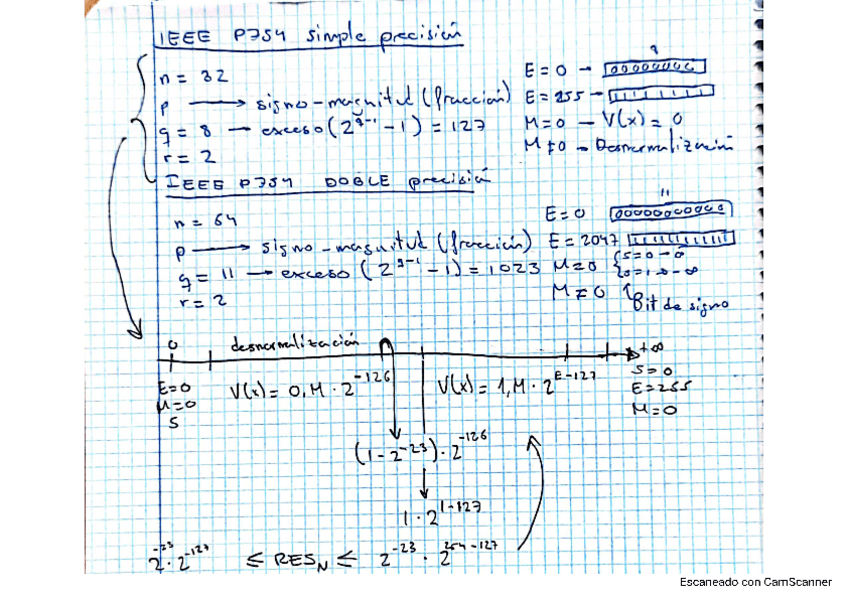 IEEE P754 simple precisión
n = 32
p → signo-magnitud (fracción)
q = 8 → exceso (2^(q-1) - 1) = 127
r = 2
E = 0 → 00000000
E = 255 → 11111111
M = 0 → V(x) = 0
M ≠ 0 → Desnormalización
IEEE P754 DOBLE precisión
n = 64
p → signo-magnitud (fracción)
q = 11 → exceso (2^(q-1) - 1) = 1023
r = 2
11
E = 0 00000000000
E = 2047 11111111111
M = 0 { S = 0 → ∞
S = 1 → -∞
M ≠ 0
Bit de signo
0 desnormalización +∞
E=0
M=0
S
V(x) = 0,M · 2^-126
V(x) = 1,M · 2^(E-127)
S=0
E=255
M=0
(1 - 2^-23) · 2^-126
1 · 2^(1-127)
2^-23 · 2^-127 ≤ RES_N ≤ 2^-23 · 2^(254-127)
Escaneado con CamScanner